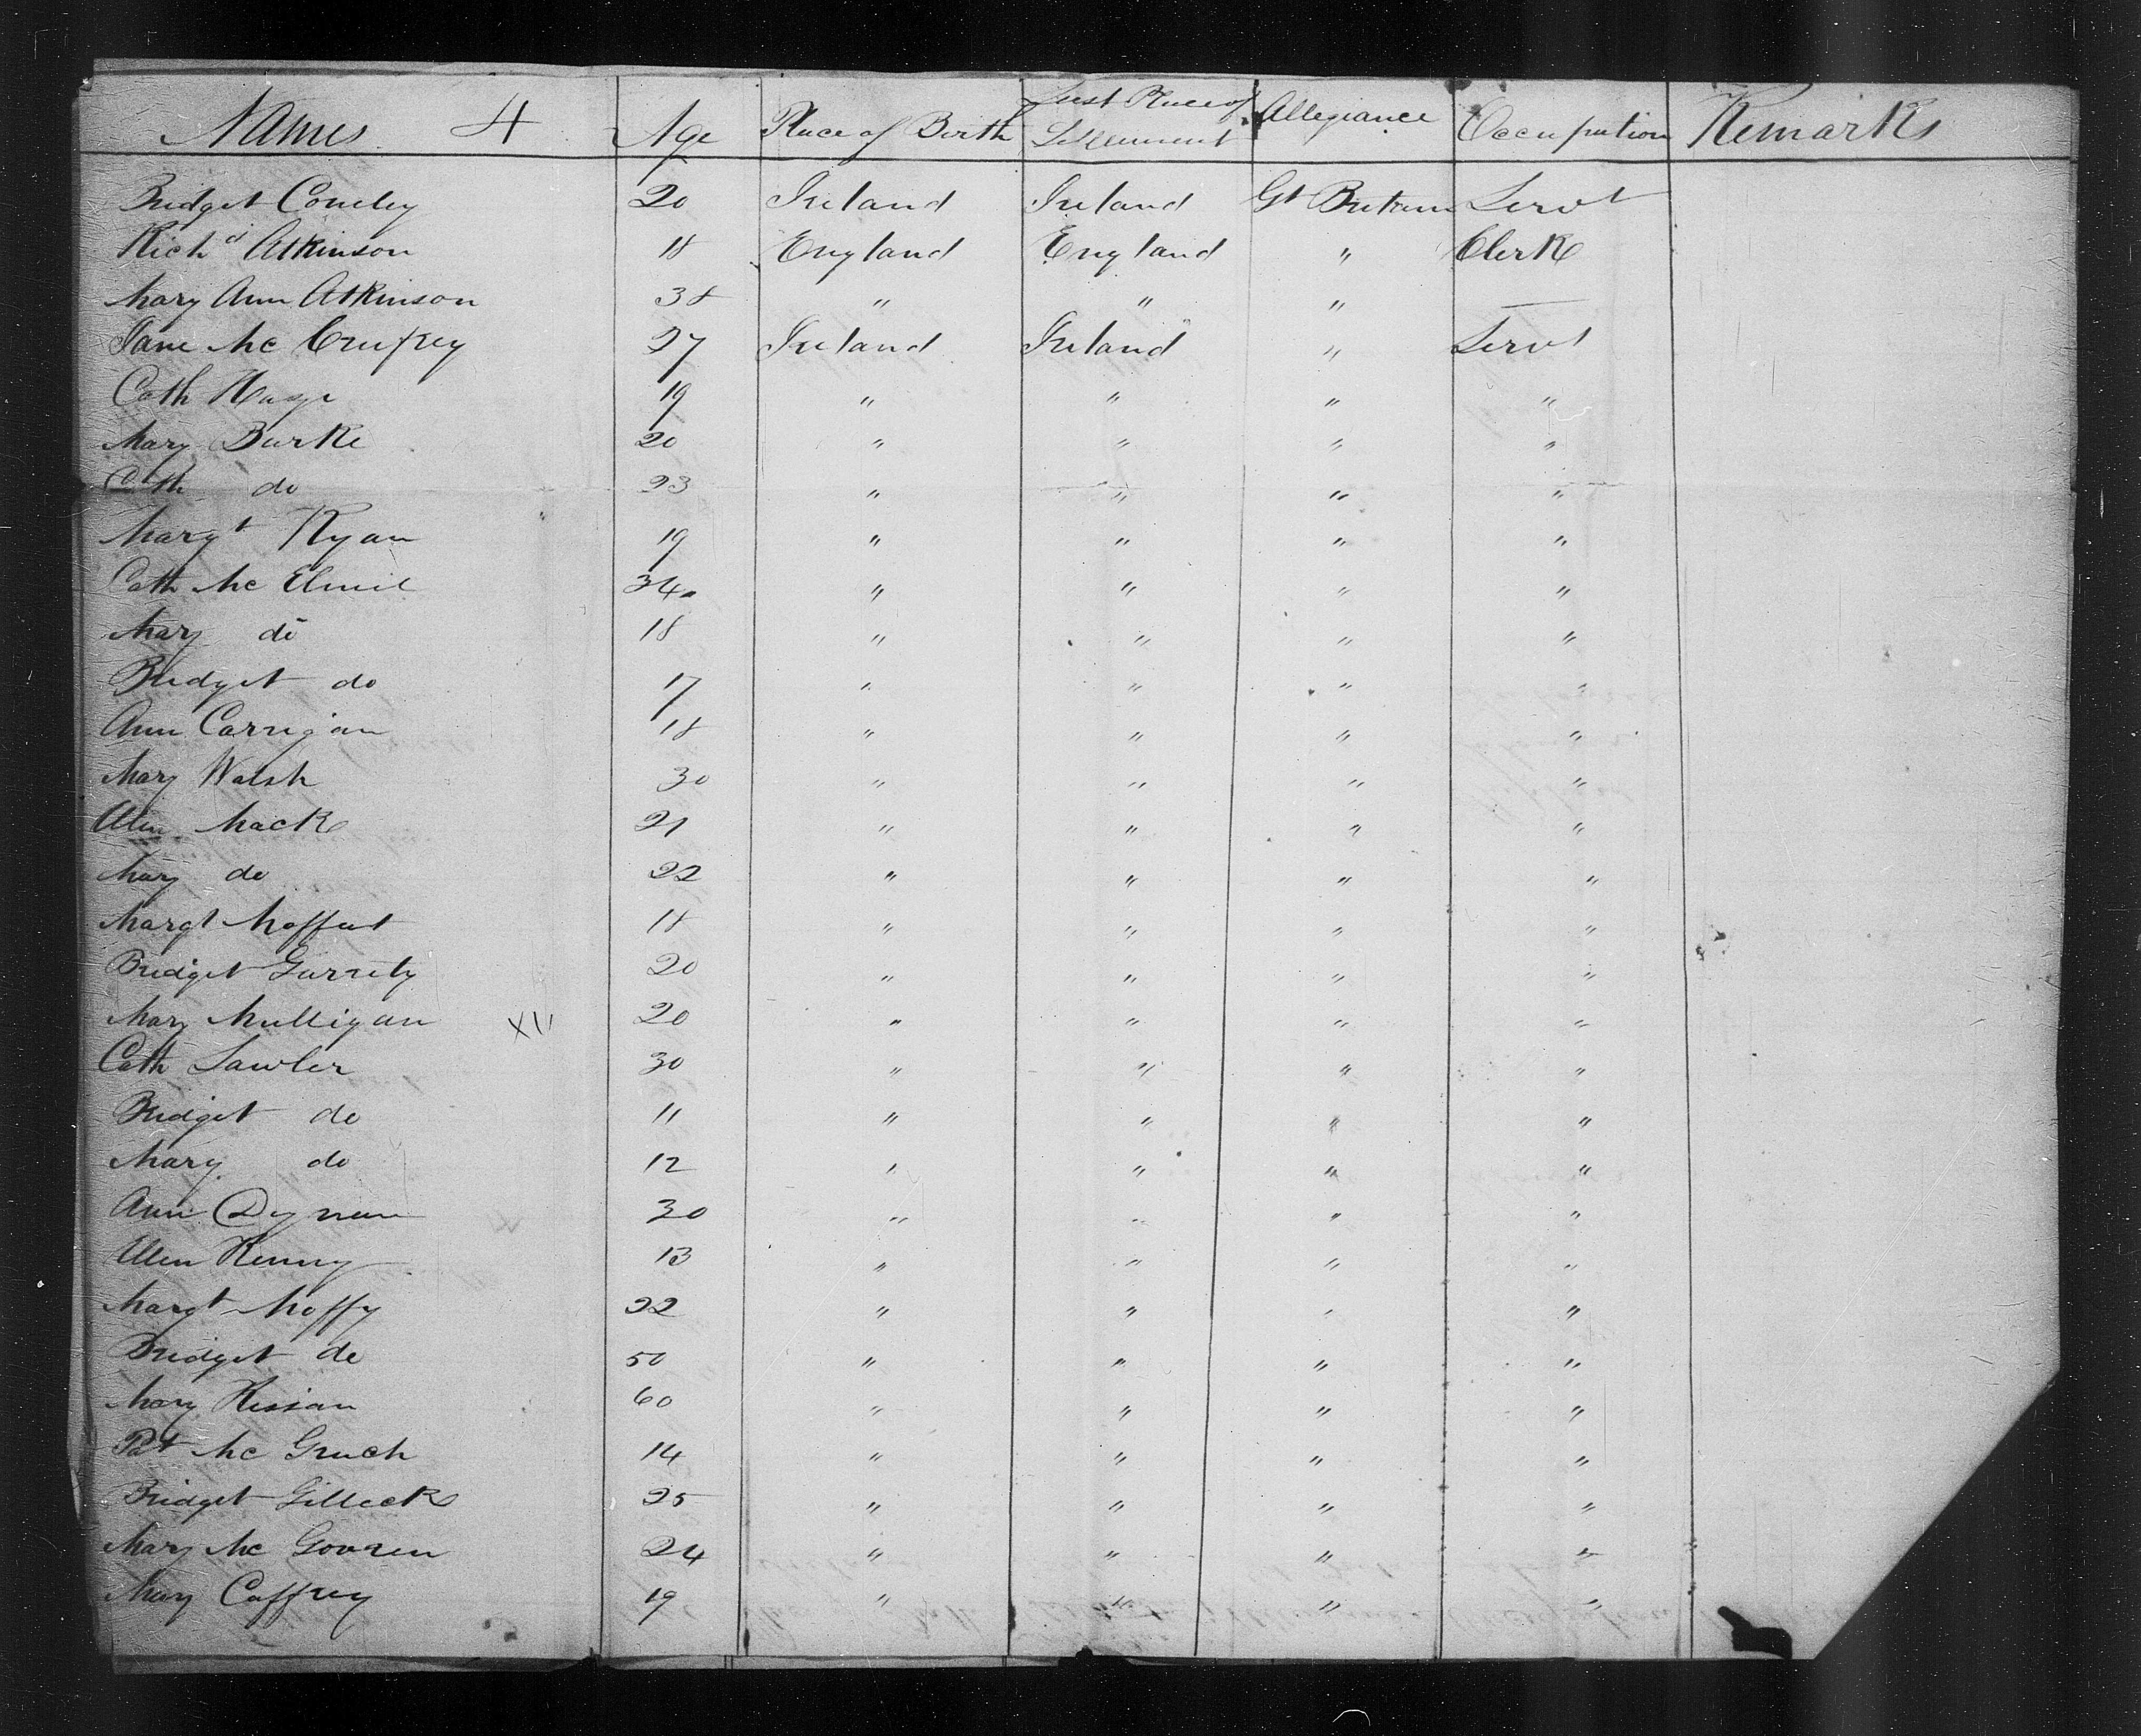 Names 4 Age Place of Birth Last Place of Settlement Allegiance Occupation Remarks
Bridget Coneley 20 Ireland Ireland Gt Britain Servt
Richd Atkinson 18 England England " Clerk
Mary Ann Atkinson 38 " " " —
Jane Mc Caffrey 27 Ireland Ireland " Servt
Cath 19 " " " "
Mary Burke 20 " " " "
Cath do 23 " " " "
Margt Ryan 19 " " " "
Cath Mc 34 " " " "
Mary do 18 " " " "
Bridget do 17 " " " "
Ann Carrigan 18 " " " "
Mary Walsh 30 " " " "
Ellen Mack 21 " " " "
Mary do 22 " " " "
Margt Moffat 18 " " " "
Bridget Garrity 20 " " " "
Mary Mulligan XII 20 " " " "
Cath Lawler 30 " " " "
Bridget do 11 " " " "
Mary do 12 " " " "
Ann Dignan 30 " " " "
Ellen Kenny 13 " " " "
Margt Moffy 22 " " " "
Bridget do 50 " " " "
Mary Kissan 60 " " " "
Pat Mc 14 " " " "
Bridget Gilleck 25 " " " "
Mary Mc Govren 24 " " " "
Mary Caffrey 19 " " " "